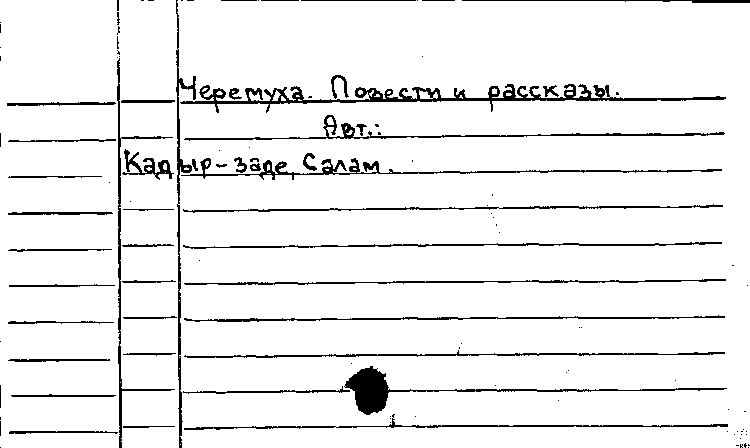 Черемуха. Повести и рассказы.
Авт.:
Кадыр-заде, Салам.